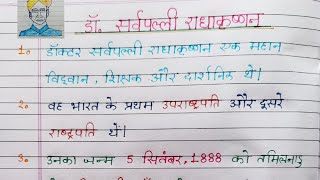 डॉ. सर्वपल्ली राधाकृष्णन
1. डॉक्टर सर्वपल्ली राधाकृष्णन एक महान
विद्वान, शिक्षक और दार्शनिक थे।
2. वह भारत के प्रथम उपराष्ट्रपति और दूसरे
राष्ट्रपति थें।
3. उनका जन्म 5 सितंबर, 1888 को तमिलनाडु